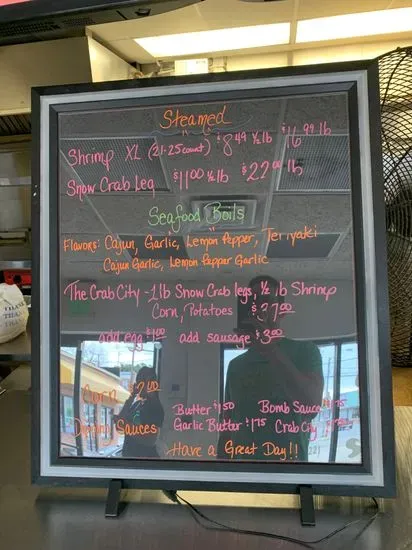 Steamed
Shrimp XL (21-25 count) $8.49 ½ lb $16.99 lb
Snow Crab Leg $11.00 ½ lb $22.00 lb
Seafood Boils
Flavors: Cajun, Garlic, Lemon Pepper, Teriyaki
Cajun Garlic, Lemon Pepper Garlic
The Crab City - 1 lb Snow Crab legs, ½ lb Shrimp
Corn, Potatoes $37.00
add egg $1.00 add sausage $3.00
Corn $2.00
Butter $1.50 Bomb Sauce $1.75
Dipping Sauces Garlic Butter $1.75 Crab City
Have a Great Day!!
THAN
THAN